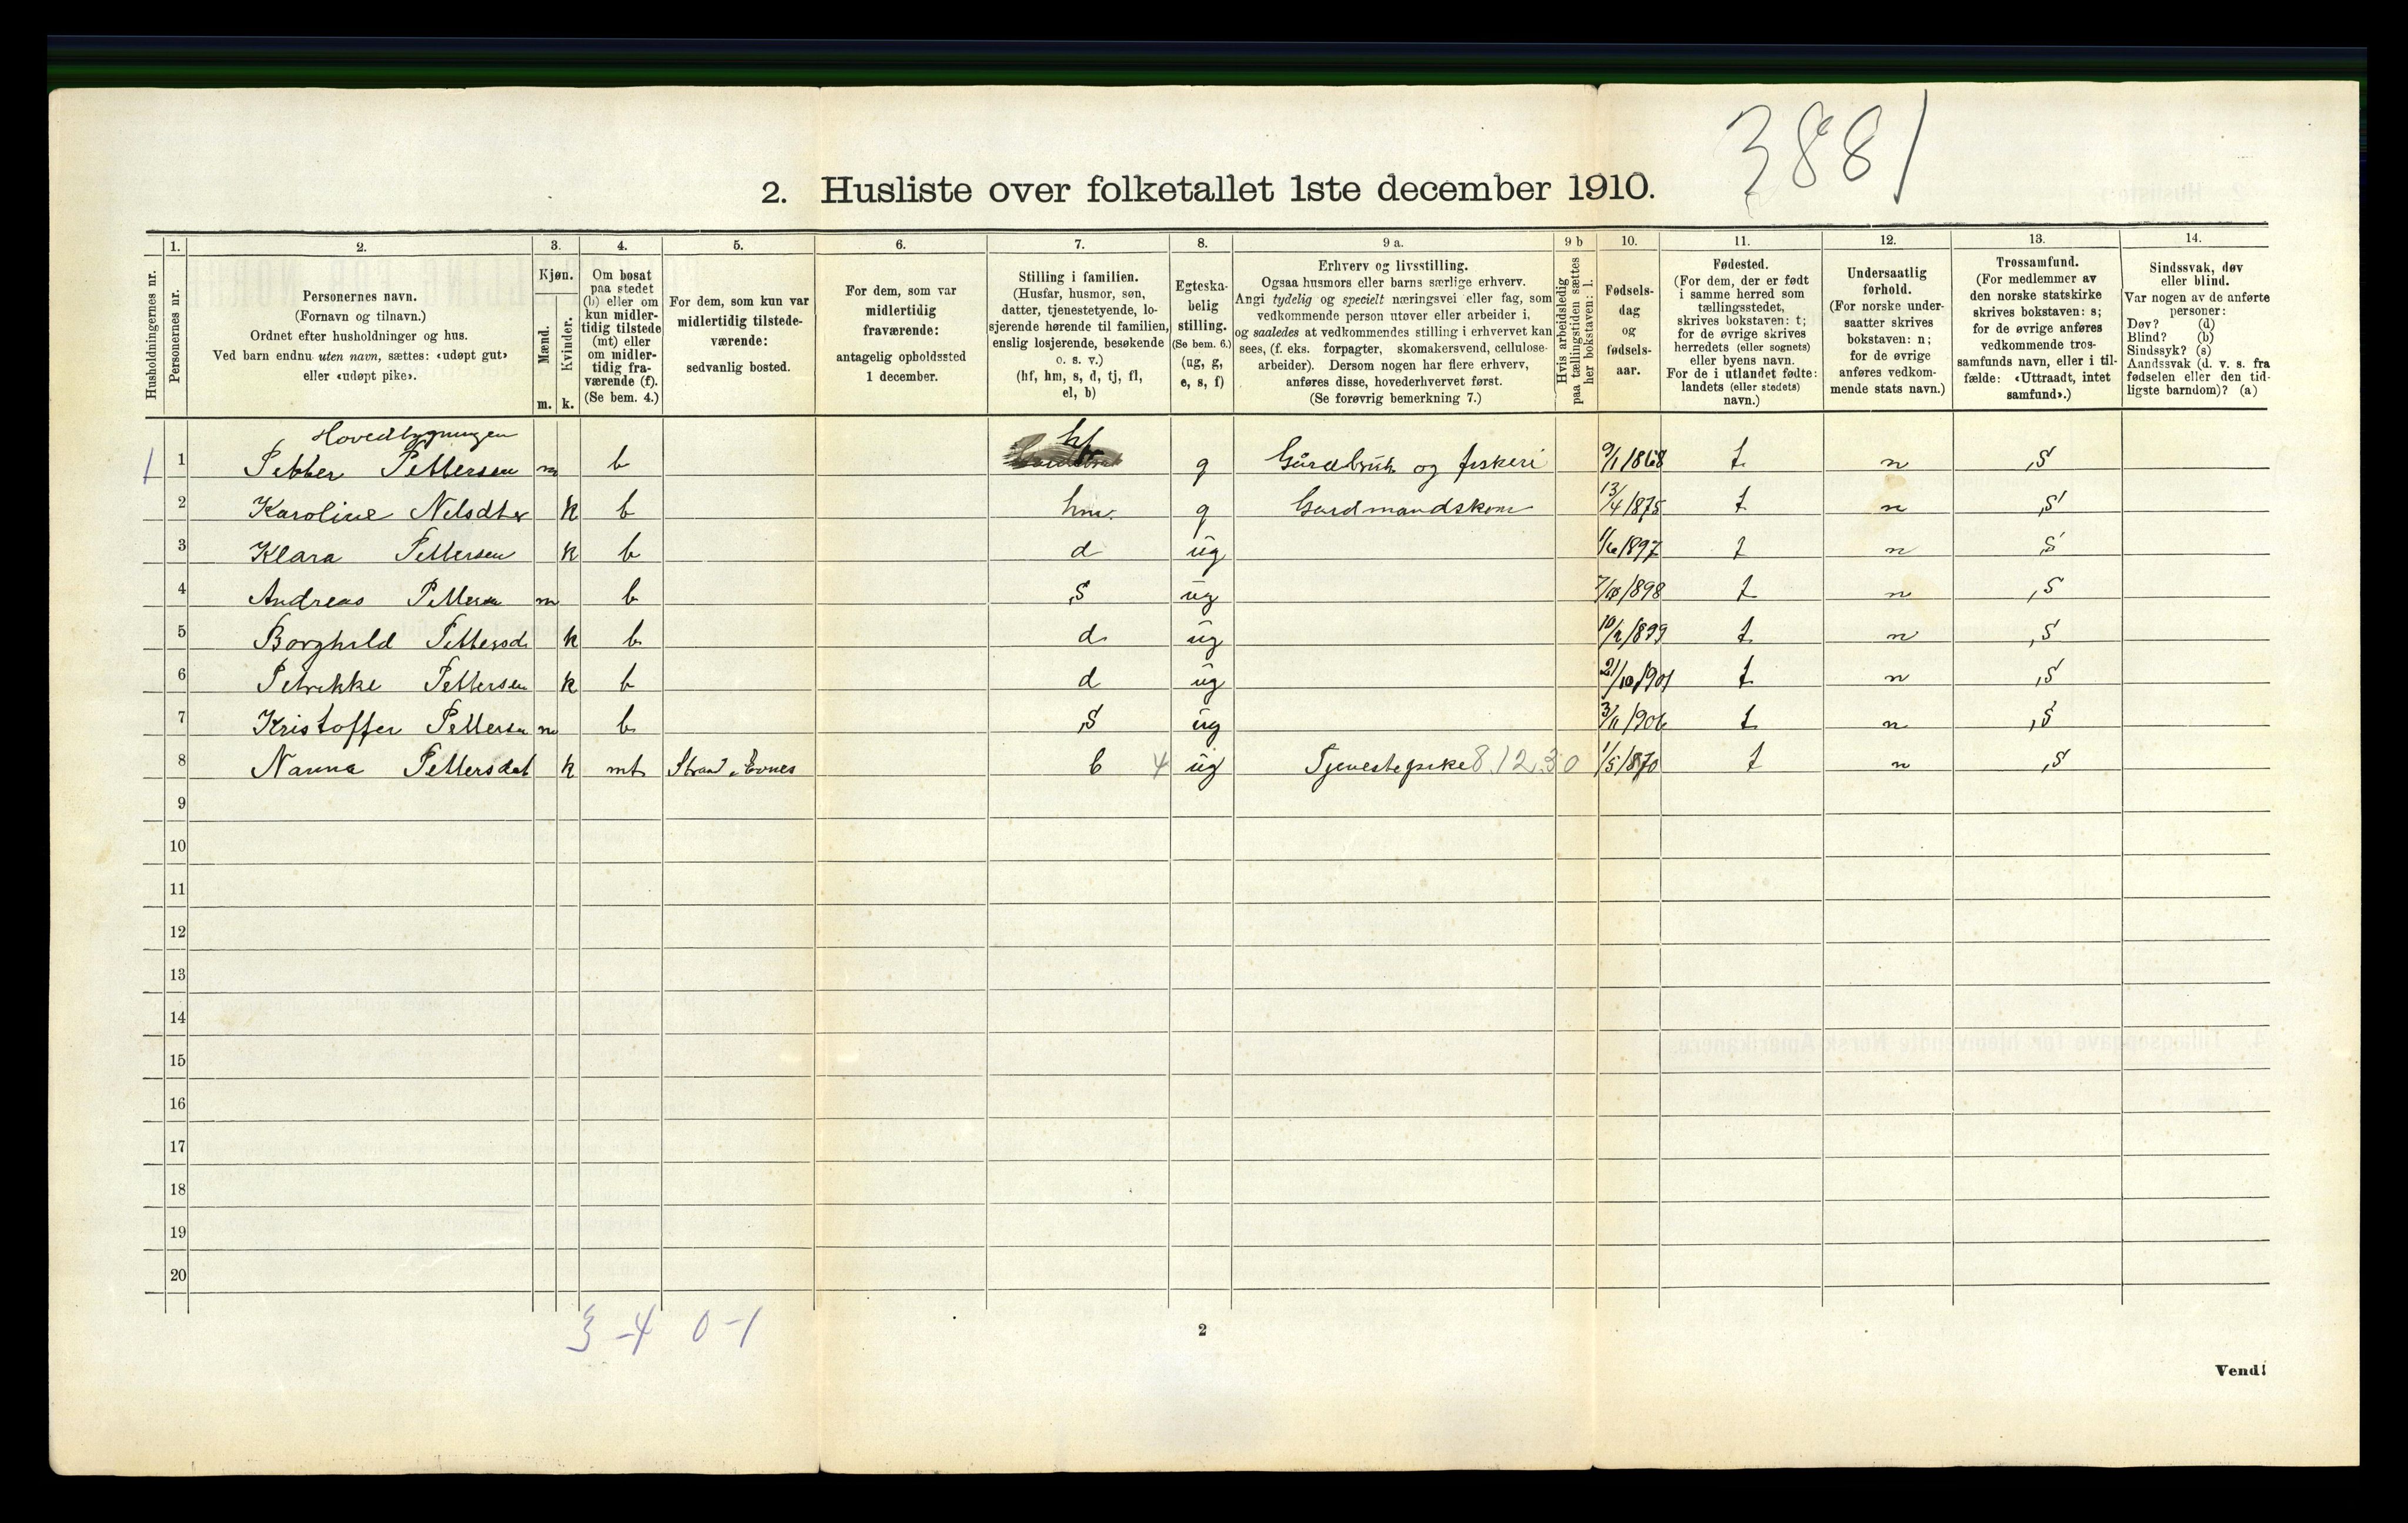 3881
2. Husliste over folketallet 1ste december 1910.
Husholdningernes nr.
1. Personernes nr.
2. Personernes navn.
(Fornavn og tilnavn.)
Ordnet efter husholdninger og hus.
Ved barn endnu uten navn, sættes: «udøpt gut»
eller «udøpt pike».
3. Kjøn.
Mænd. m.
Kvinder. k.
4. Om bosat
paa stedet
(b) eller om
kun midler-
tidig tilstede
(mt) eller
om midler-
tidig fra-
værende (f).
(Se bem. 4.)
5. For dem, som kun var
midlertidig tilstede-
værende:
sedvanlig bosted.
6. For dem, som var
midlertidig
fraværende:
antagelig opholdssted
1 december.
7. Stilling i familien.
(Husfar, husmor, søn,
datter, tjenestetyende, lo-
sjerende hørende til familien,
enslig losjerende, besøkende
o. s. v.)
(hf, hm, s, d, tj, fl,
el, b)
8. Egteska-
belig
stilling.
(Se bem. 6.)
(ug, g,
e, s, f)
9 a. Erhverv og livsstilling.
Ogsaa husmors eller barns særlige erhverv.
Angi tydelig og specielt næringsvei eller fag, som
vedkommende person utøver eller arbeider i,
og saaledes at vedkommendes stilling i erhvervet kan
sees, (f. eks. forpagter, skomakersvend, cellulose-
arbeider). Dersom nogen har flere erhverv,
anføres disse, hovederhvervet først.
(Se forøvrig bemerkning 7.)
9 b Hvis arbeidsledig
paa tællingstiden sættes
her bokstaven: l.
10. Fødsels-
dag
og
fødsels-
aar.
11. Fødested.
(For dem, der er født
i samme herred som
tællingsstedet,
skrives bokstaven: t;
for de øvrige skrives
herredets (eller sognets)
eller byens navn.
For de i utlandet fødte:
landets (eller stedets)
navn.)
12. Undersaatlig
forhold.
(For norske under-
saatter skrives
bokstaven: n;
for de øvrige
anføres vedkom-
mende stats navn.)
13. Trossamfund.
(For medlemmer av
den norske statskirke
skrives bokstaven: s;
for de øvrige anføres
vedkommende tros-
samfunds navn, eller i til-
fælde: «Uttraadt, intet
samfund».)
14. Sindssvak, døv
eller blind.
Var nogen av de anførte
personer:
Døv? (d)
Blind? (b)
Sindssyk? (s)
Aandssvak (d. v. s. fra
fødselen eller den tid-
ligste barndom)? (a)
Hovedbygningen
1 1 Petter Pettersen m b hf g Gårdbruk og fiskeri 9/1 1868 t n S
2 Karoline Nilsdter k b hm. g Gardmandskone 13/4 1875 t n S
3 Klara Pettersen k b d ug 1/6 1897 t n S
4 Andreas Pettersen m b S ug 1898 t n S
5 Borghild Pettersd k b d ug 10/2 1899 t n S
6 Petrikke Pettersen k b d ug 21/10 1901 t n S
7 Kristoffer Pettersen m b S ug 3/11 1906 t n S
8 Nanna Pettersdat k mt Strand, Evenes b 4 ug Tjenestepike 8.12.30 1/5 1870 t n S
9
10
11
12
13
14
15
16
17
18
19
20
3-4 0-1
2
Vend!